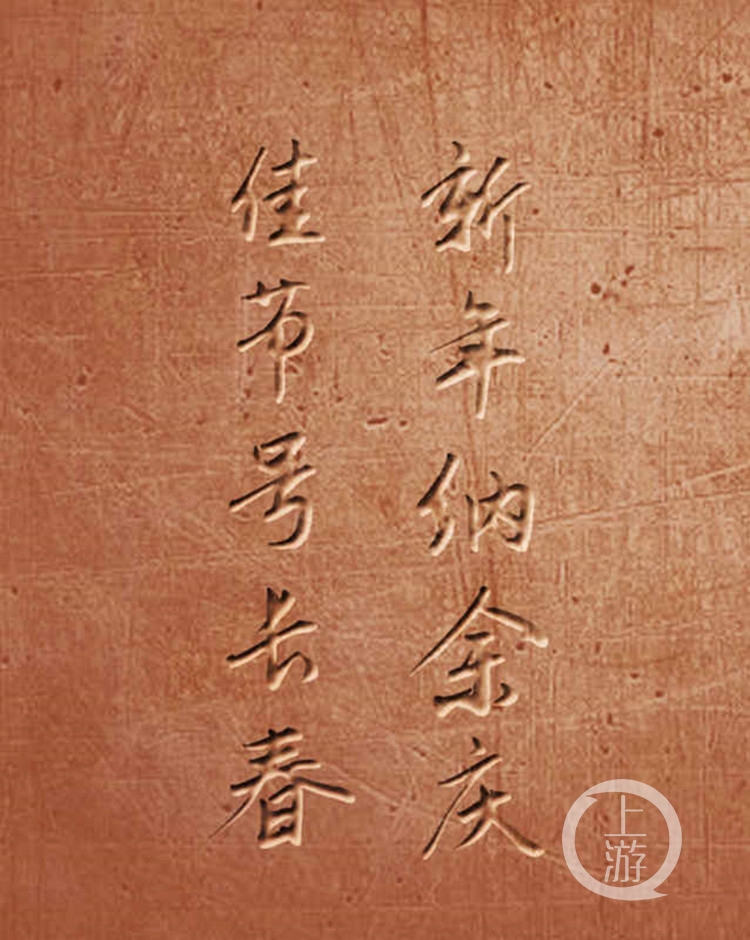 新年纳余庆
佳节号长春
上游